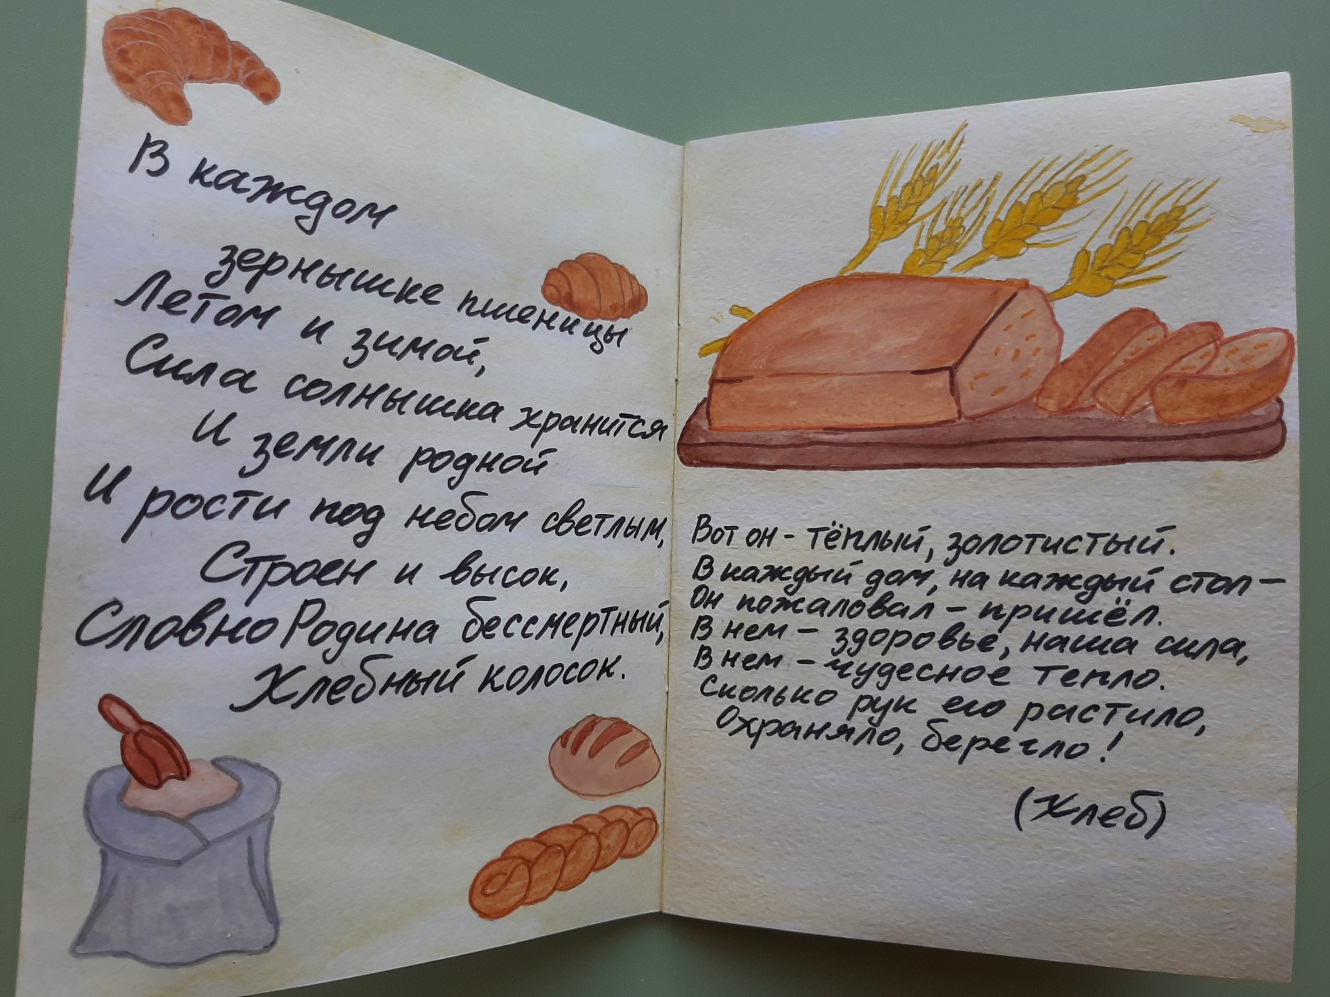 В каждом
зернышке пшеницы
Летом и зимой,
Сила солнышка хранится
И земли родной
И рости под небом светлым,
Строен и высок,
Словно Родина бессмертный,
Хлебный колосок.
Вот он - тёплый, золотистый.
В каждый дом, на каждый стол -
Он пожаловал - пришёл.
В нем - здоровье, наша сила,
В нем - чудесное тепло.
Сколько рук его растило,
Охраняло, берегло!
(Хлеб)